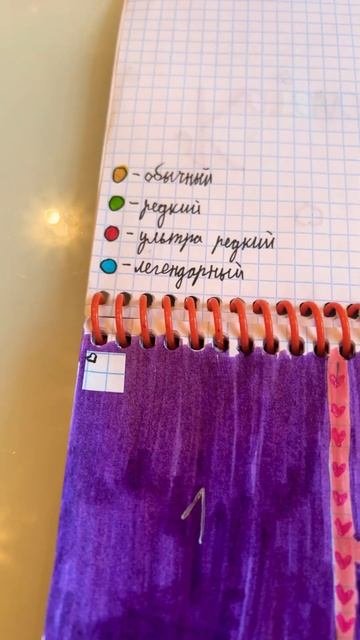 - обычный
- редкий
- ультра редкий
- легендарный
1